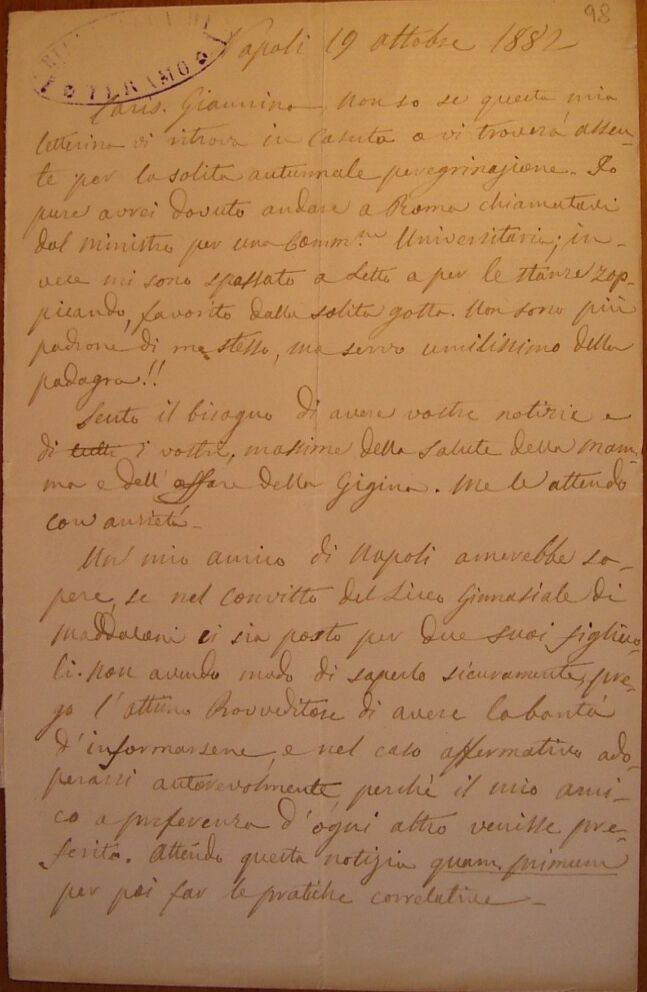 98
TERAMO
Napoli 19 ottobre 1882
Cariss. Giannina, Non so se questa mia
letterina vi ritrova in Caserta o vi troverà assen-
te per la solita autunnale peregrinazione. Io
pure avrei dovuto andare a Roma chiamatavi
dal ministro per una Commne Universitaria; in-
vece mi sono spassato a letto a per le stanze zop-
picando, favorito dalla solita gotta. Non sono più
padrone di me stesso, ma servo umilissimo della
podagra!!
Sento il bisogno di avere vostre notizie e
di tutti i vostri, massime della salute della mam-
ma e dell'affare della Gigina. Me le attendo
con ansietà.
Un mio amico di Napoli amerebbe sa-
pere, se nel Convitto del Liceo Ginnasiale di
Maddaloni ci sia posto per due suoi figliuo-
li. Non avendo modo di saperlo sicuramente, pre-
go l'ottimo Provveditore di avere la bontà
d'informarsene, e nel caso affermativo ado-
perarsi autorevolmente, perchè il mio ami-
co a preferenza d'ogni altro venisse pre-
ferito. Attendo questa notizia quam primum
per poi far le pratiche correlative.